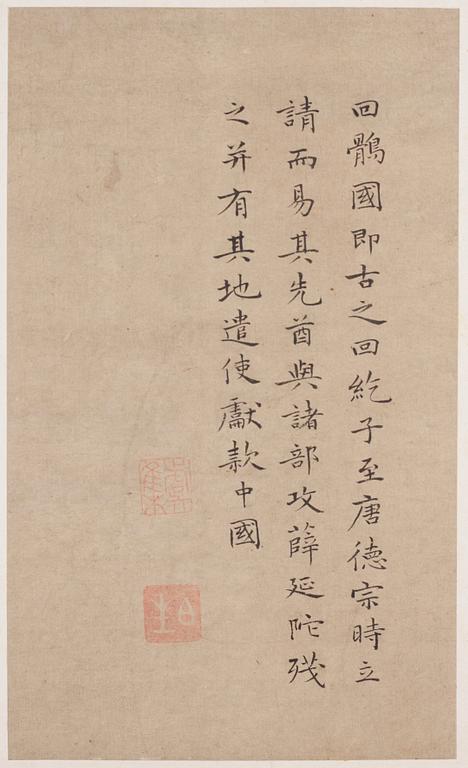 回鶻國即古之回紇子至唐德宗時立
請而易其先酋與諸部攻薛延陀殘
之并有其地遣使獻款中國